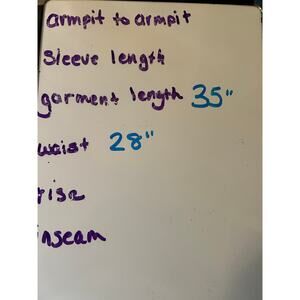 armpit to armpit
sleeve length
garment length 35"
waist 28"
rise
inseam